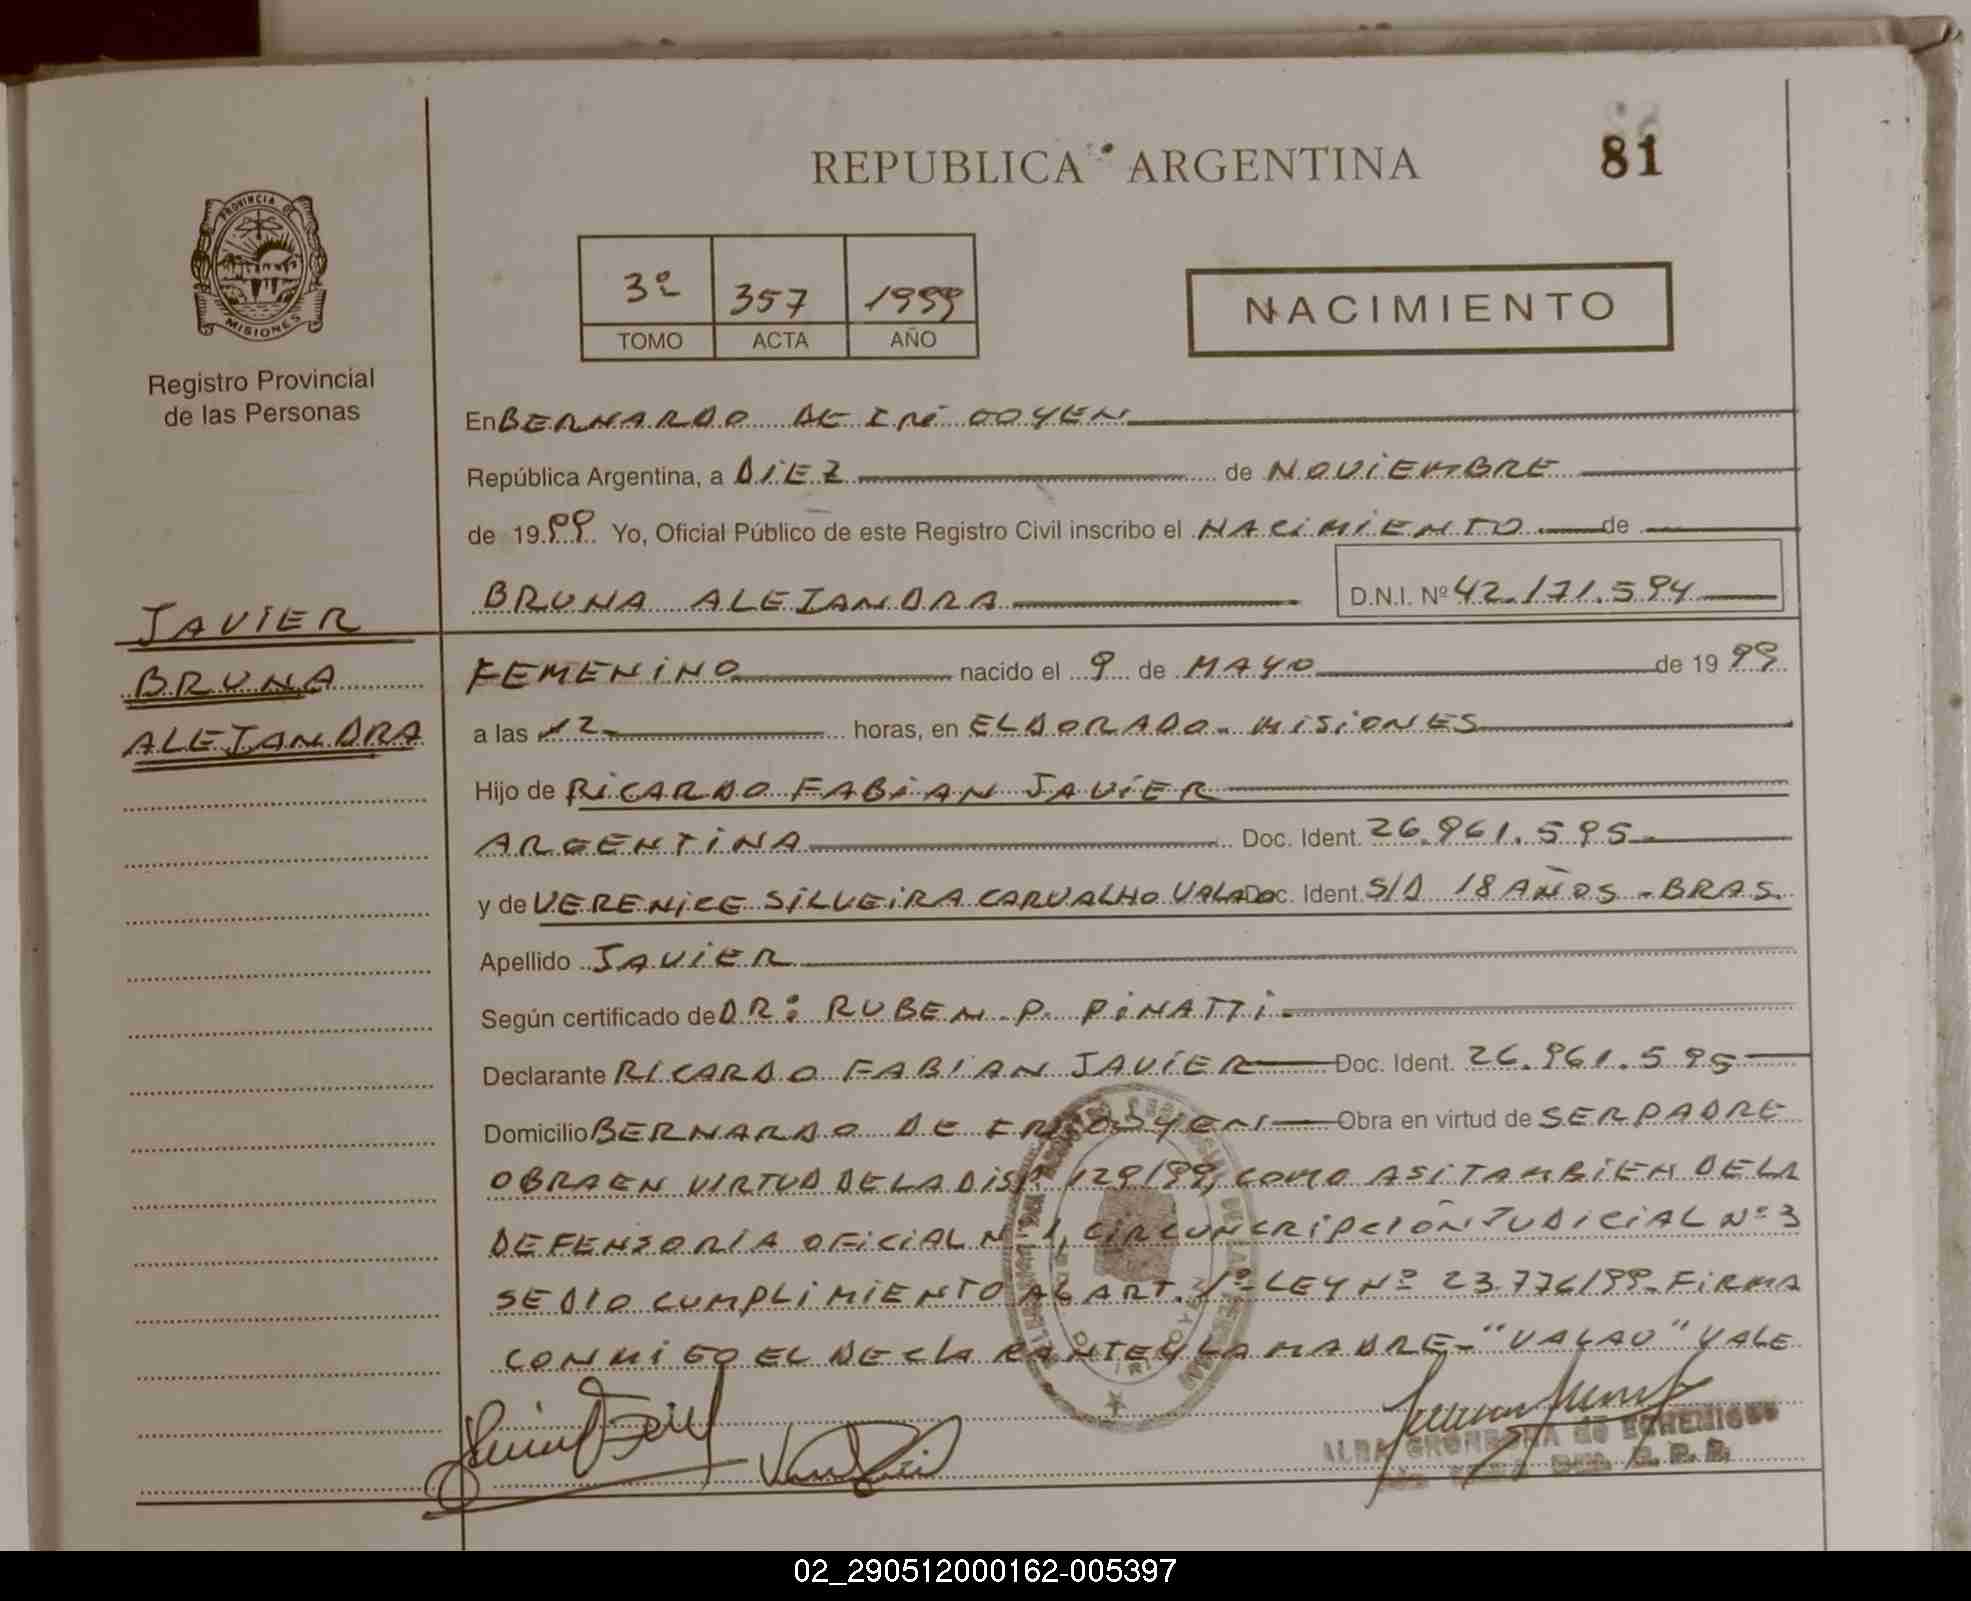 REPUBLICA ARGENTINA
81
PROVINCIA DE
MISIONES
Registro Provincial
de las Personas
3º 357 1999
TOMO ACTA AÑO
NACIMIENTO
En BERNARDO DE IRIGOYEN
República Argentina, a DIEZ de NOVIEMBRE
de 1999 Yo, Oficial Público de este Registro Civil inscribo el NACIMIENTO de
BRUNA ALEJANDRA D.N.I. Nº 42.171.594
JAVIER
BRUNA
ALEJANDRA
FEMENINO nacido el 9 de MAYO de 1999
a las 12 horas, en ELDORADO - MISIONES
Hijo de RICARDO FABIAN JAVIER
ARGENTINA Doc. Ident. 26.961.595
y de VERENICE SILVEIRA CARVALHO Doc. Ident. S/D 18 AÑOS - BRAS.
Apellido JAVIER
Según certificado de DR: RUBEN P. PINATTI
Declarante RICARDO FABIAN JAVIER Doc. Ident. 26.961.595
Domicilio BERNARDO DE IRIGOYEN Obra en virtud de SER PADRE
OBRA EN VIRTUD DE LA DISP. 129/99, COMO ASI TAMBIEN DE LA
DEFENSORIA OFICIAL Nº 1, CIRCUNCRIPCIÓN JUDICIAL Nº 3
SE DIO CUMPLIMIENTO AL ART. 1º LEY Nº 23.776/99. FIRMA
CONMIGO EL DECLARANTE Y LA MADRE - "VALAO" VALE
ALBA
02_290512000162-005397